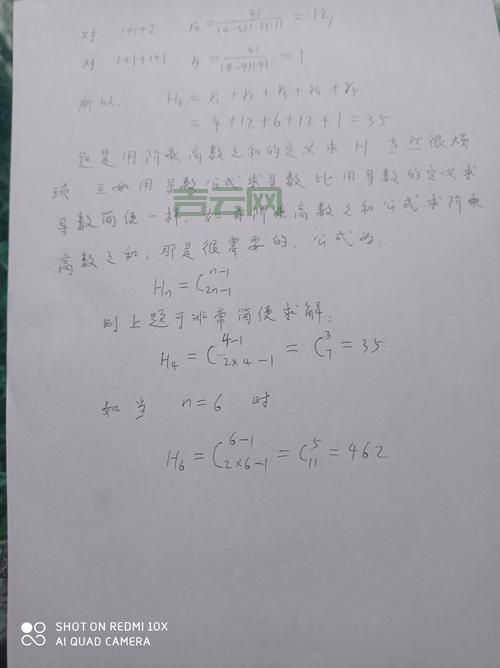 对 1+1+2 r₄ = 4!/((4-3)!·2!·1!) = 12;
对 1+1+1+1 r₅ = 4!/((4-4)!4!) = 1
所以, H₄ = r₁ + r₂ + r₃ + r₄ + r₅
= 4+12+6+12+1 = 35
这是用阶乘高数之和的定义求 H 当然很烦
琐. 正如用导数公式求导数比用导数的定义求
导数简便一样, 如有阶乘高数之和公式求阶乘
高数之和, 那是很需要的. 公式为:
Hₙ = C_{2n-1}^{n-1}
则上题可非常简便求解:
H₄ = C_{2×4-1}^{4-1} = C_7^3 = 35.
如当 n=6 时
H₆ = C_{2×6-1}^{6-1} = C_{11}^5 = 462
吉云网
SHOT ON REDMI 10X
AI QUAD CAMERA